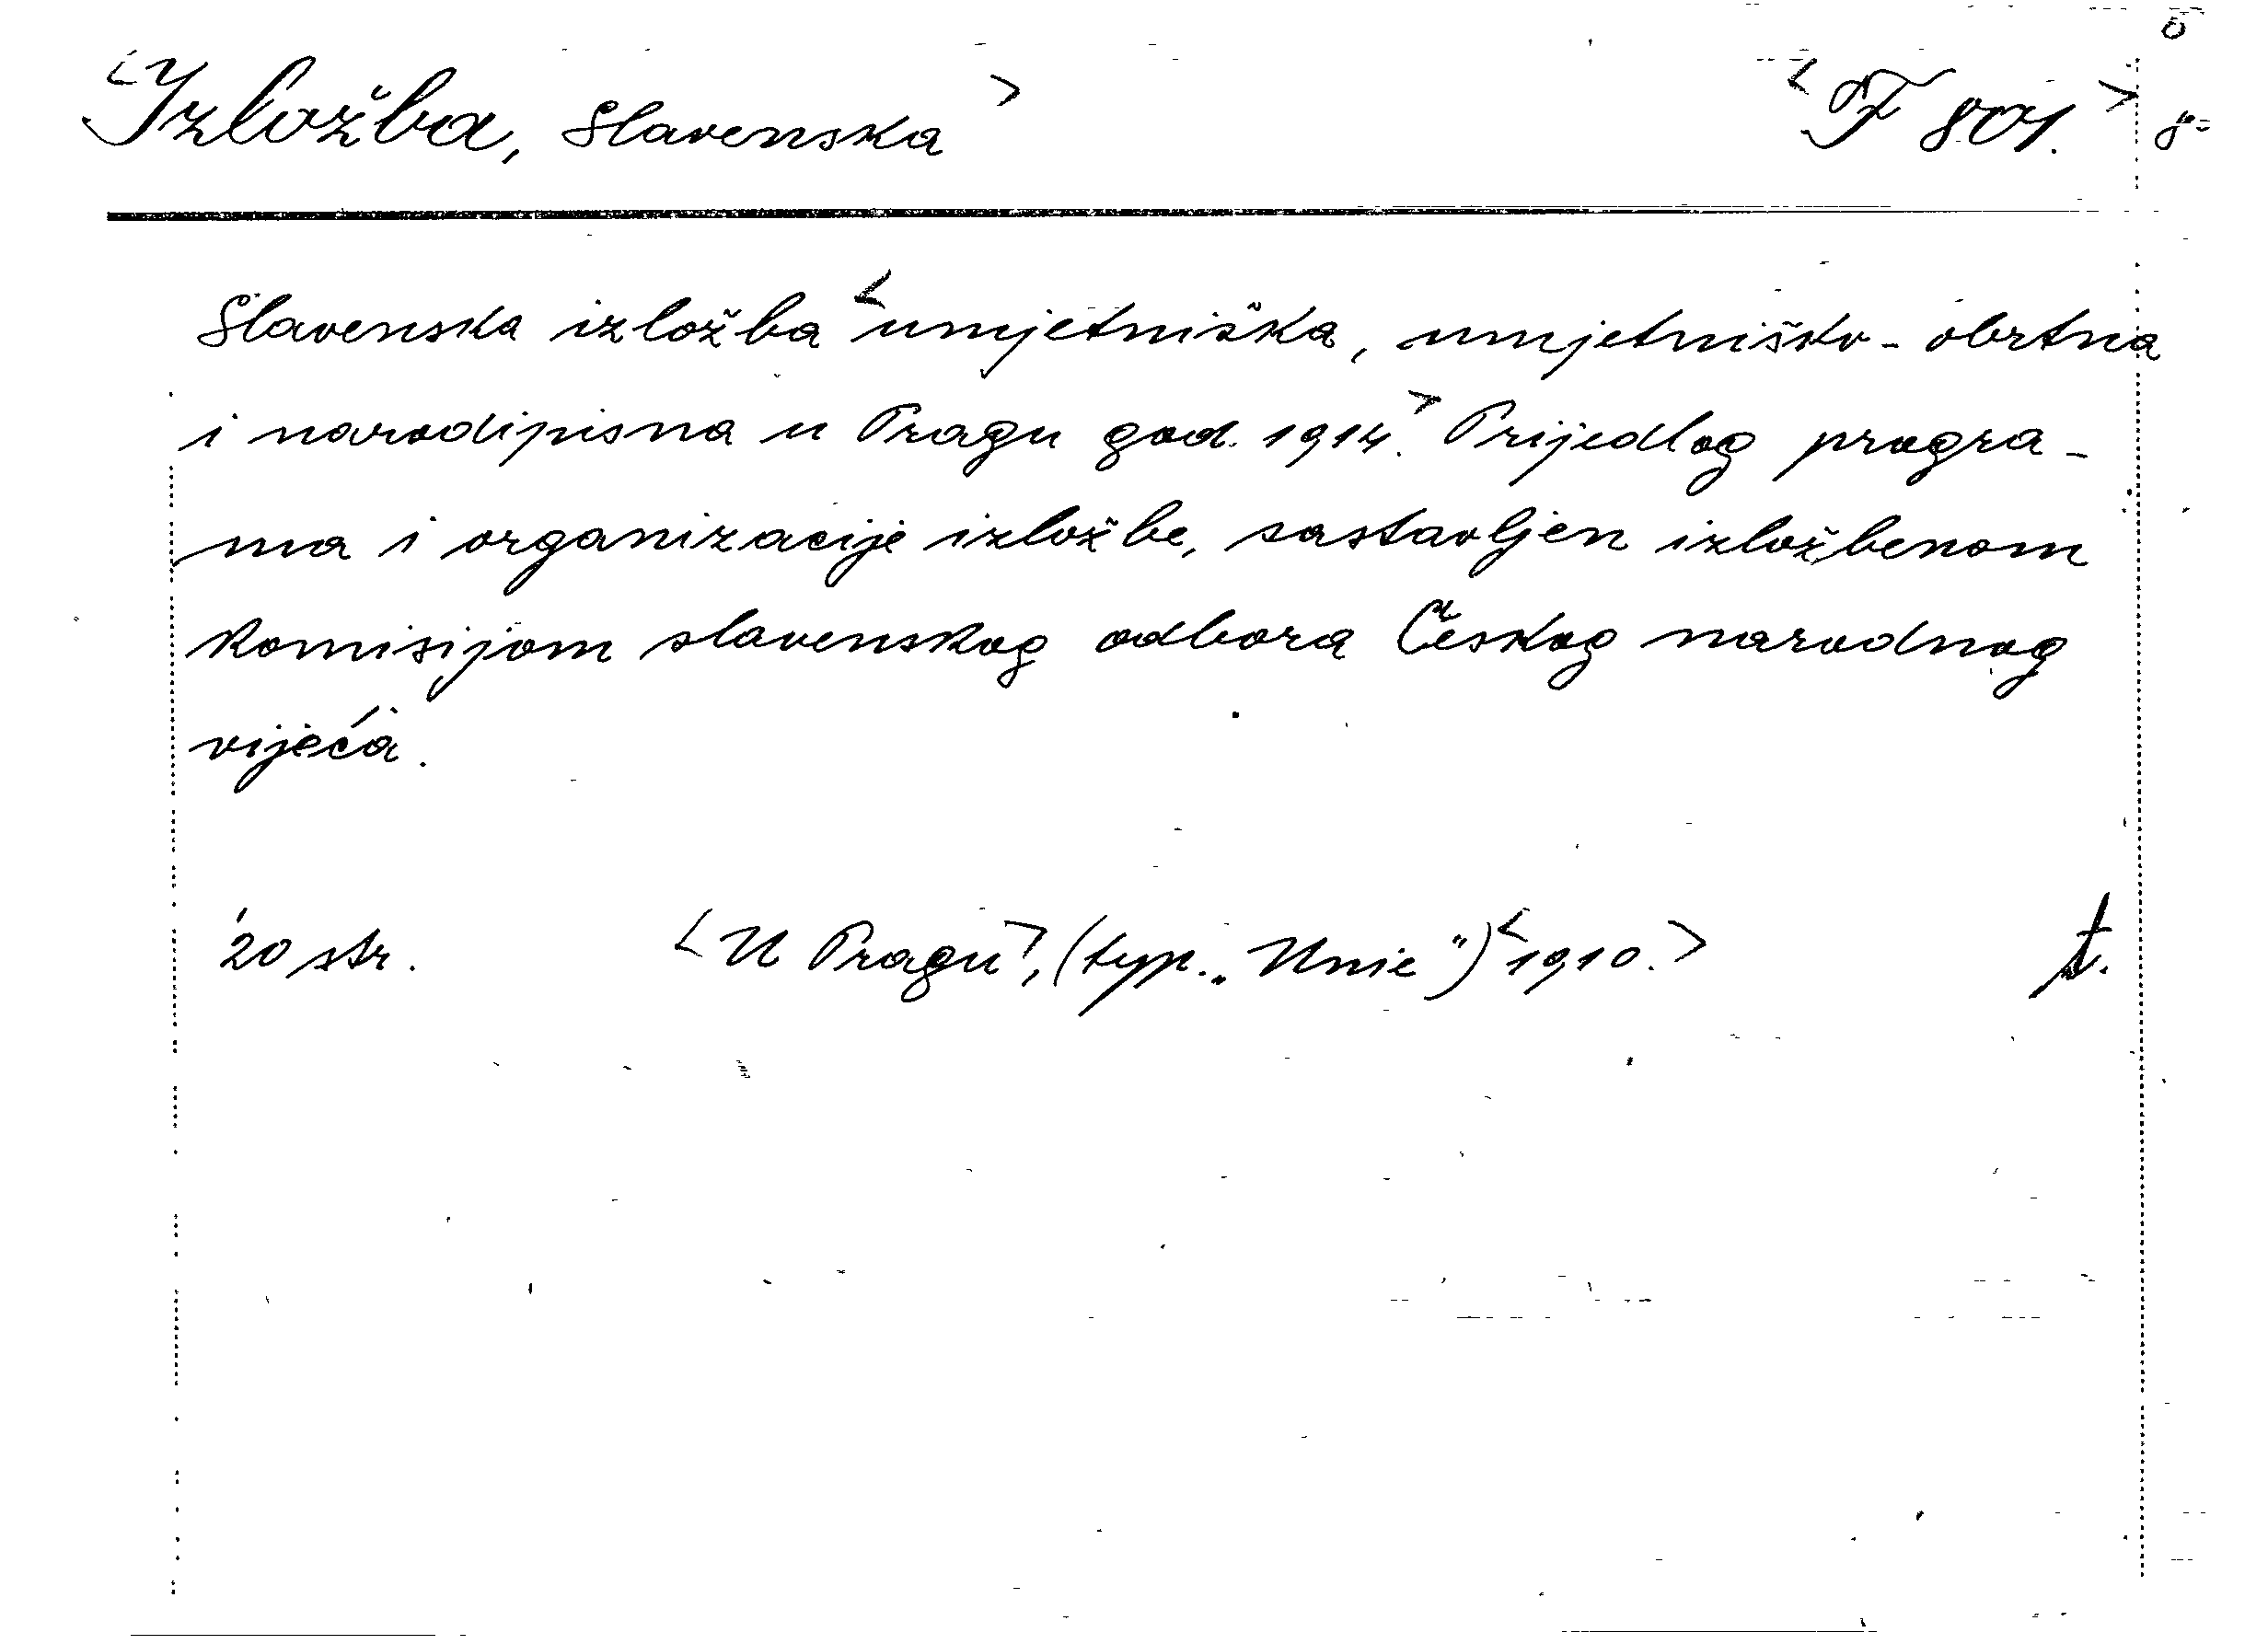 <Izložba, Slavenska> <F 801.> 8°
Slavenska izložba <umjetniška, umjetniško-obrtna
i narodipisna u Pragu god. 1914.> Prijedlog progra-
ma i organizacije izložbe, sastavljen izložbenom
komisijom slavenskog odbora Českog narodnog
vijeća.
20 str. <U Pragu>, (typ. „Unie") <1910.> t.